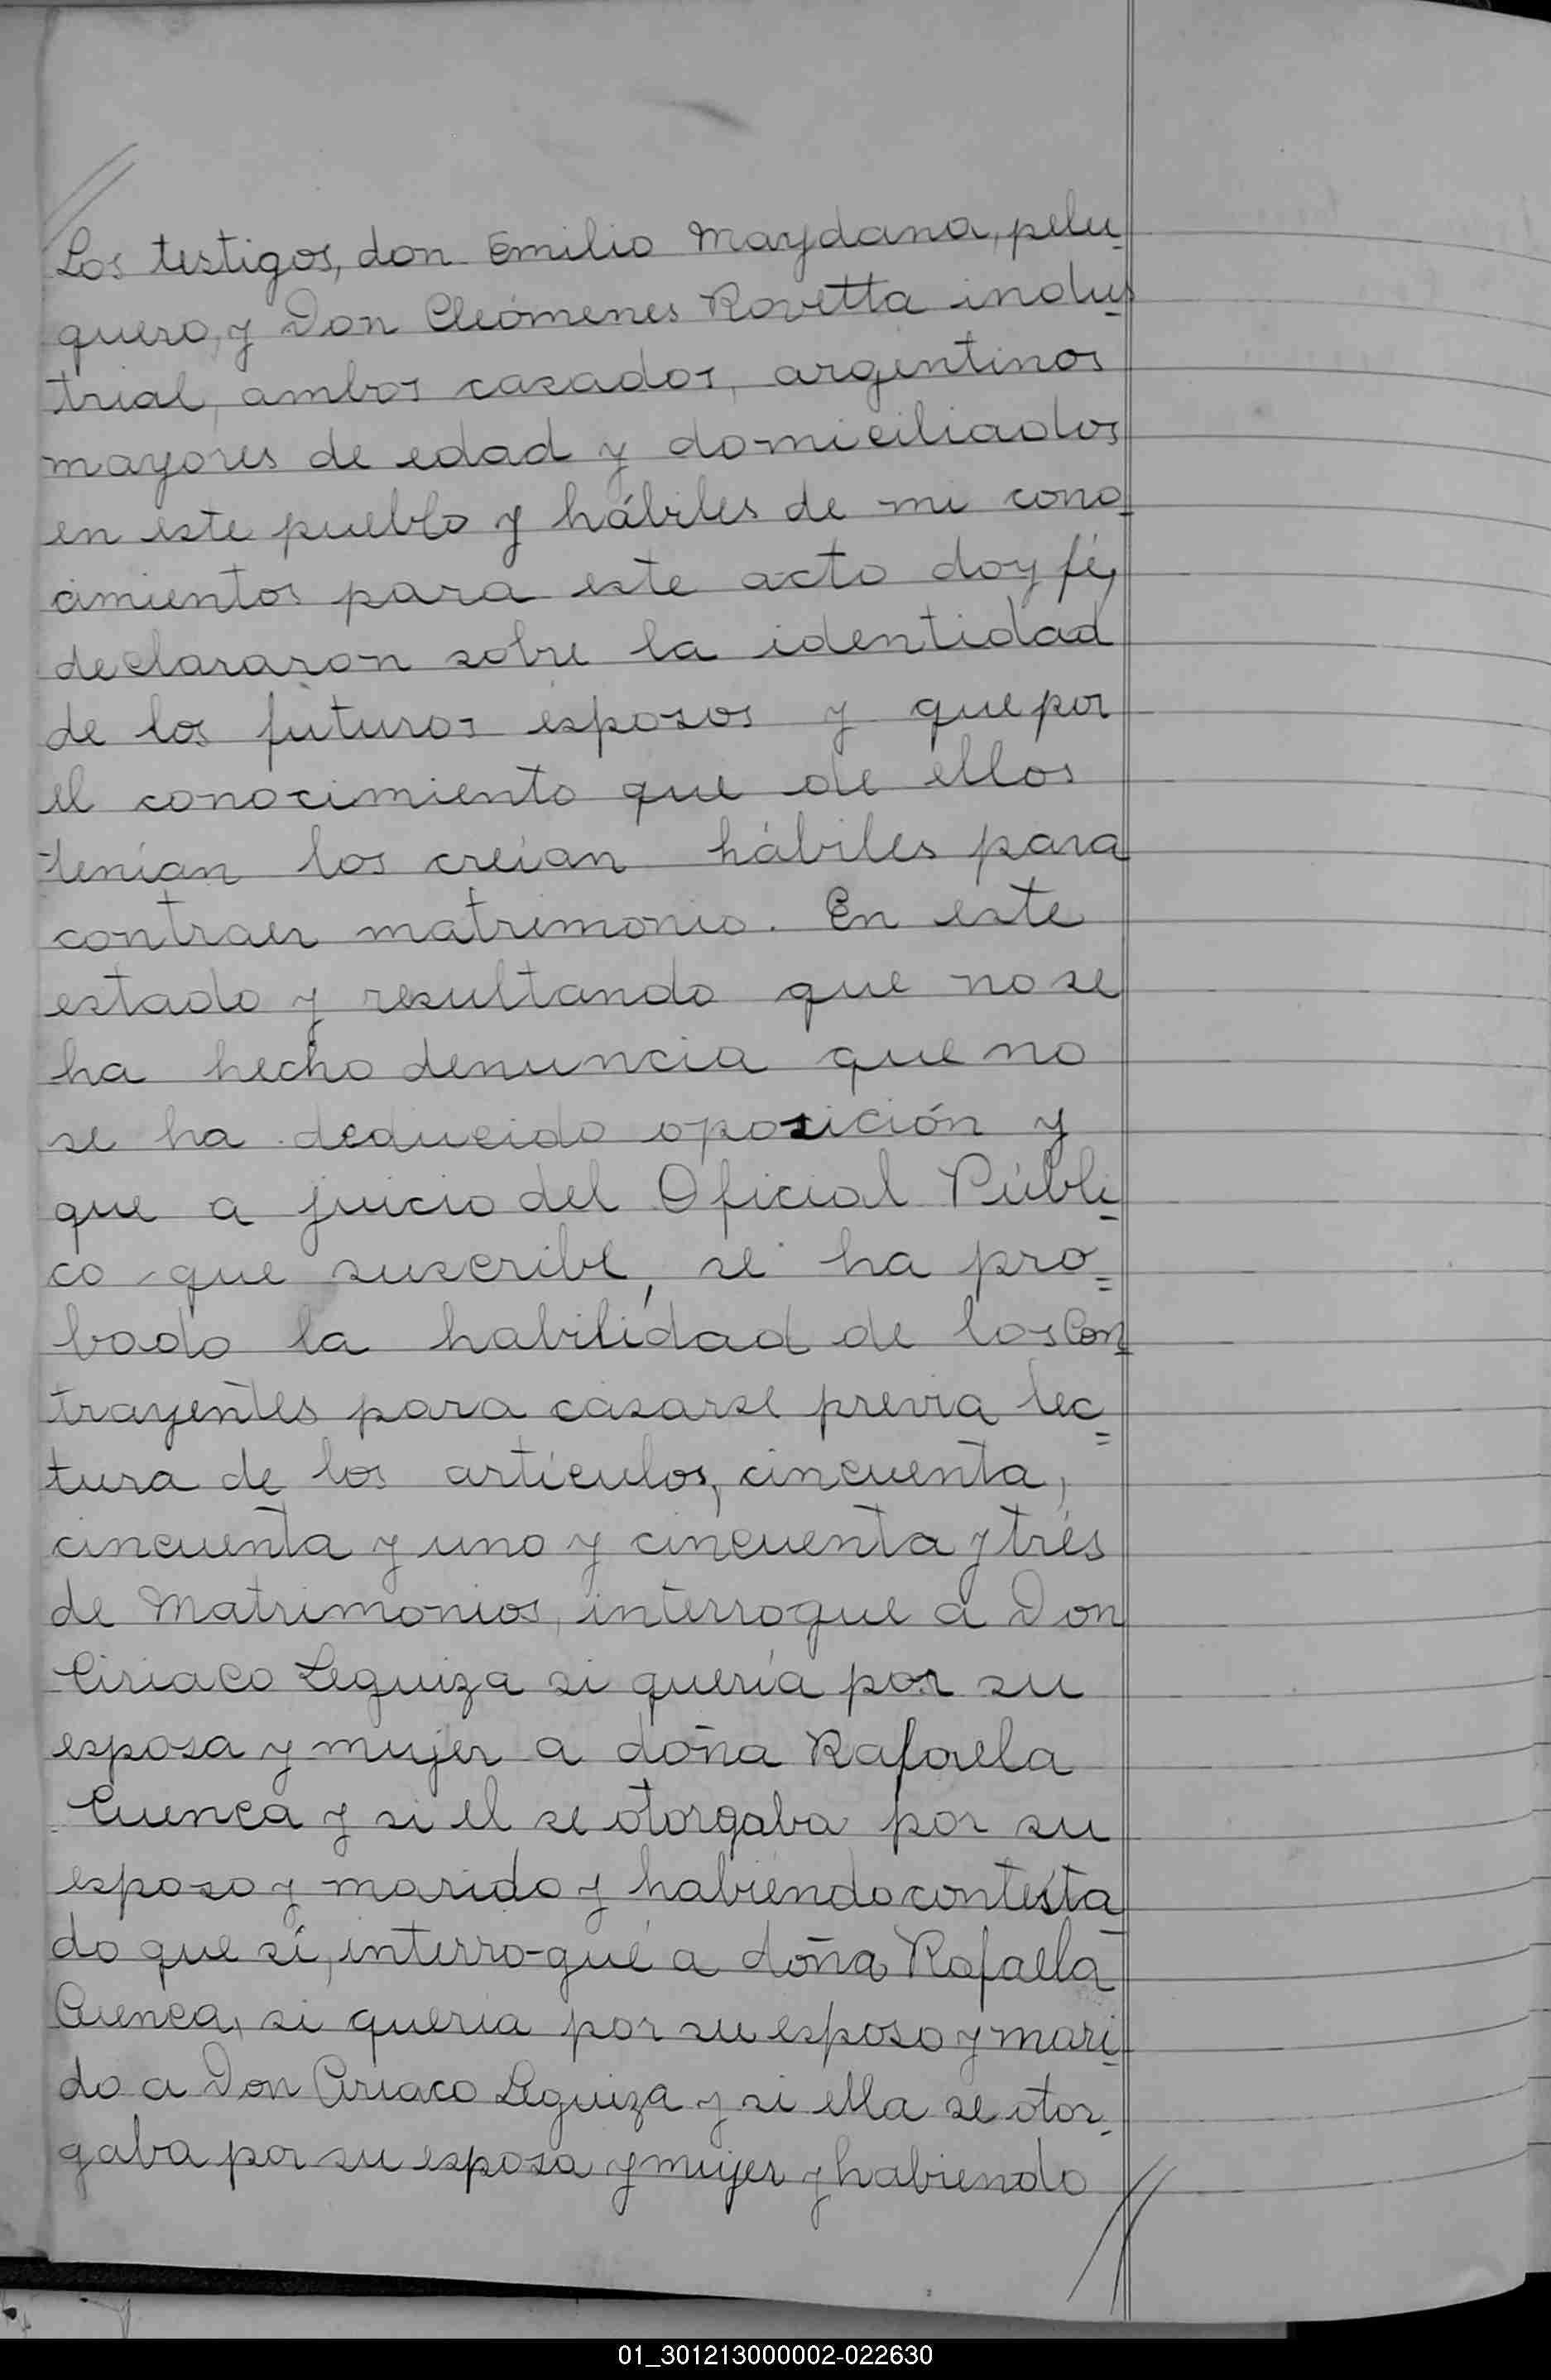 Los testigos, don Emilio Maydana, pelu-
quero, y Don Cleómenes Rovetta indus-
trial, ambos casados, argentinos
mayores de edad y domiciliados
en este pueblo y hábiles de mi cono-
cimientos para este acto doy fé,
declararon sobre la identidad
de los futuros esposos y que por
el conocimiento que de ellos
tenían los creían hábiles para
contraer matrimonio. En este
estado y resultando que no se
ha hecho denuncia que no
se ha deducido oposición y
que a juicio del Oficial Públi-
co que suscribe, se ha pro=
bado la habilidad de los Con-
trayentes para casarse previa lec=
tura de los artículos, cincuenta,
cincuenta y uno y cincuenta y trés
de Matrimonios, interrogue a Don
Ciriaco Leguiza si quería por su
esposa y mujer a doña Rafaela
Cuenca y si el se otorgaba por su
esposo y marido y habiendo contesta
do que sí, interrogué a doña Rafaela
Cuenca, si quería por su esposo y mari-
do a Don Ciriaco Leguiza y si ella se otor-
gaba por su esposa y mujer y habiendo
01_301213000002-022630